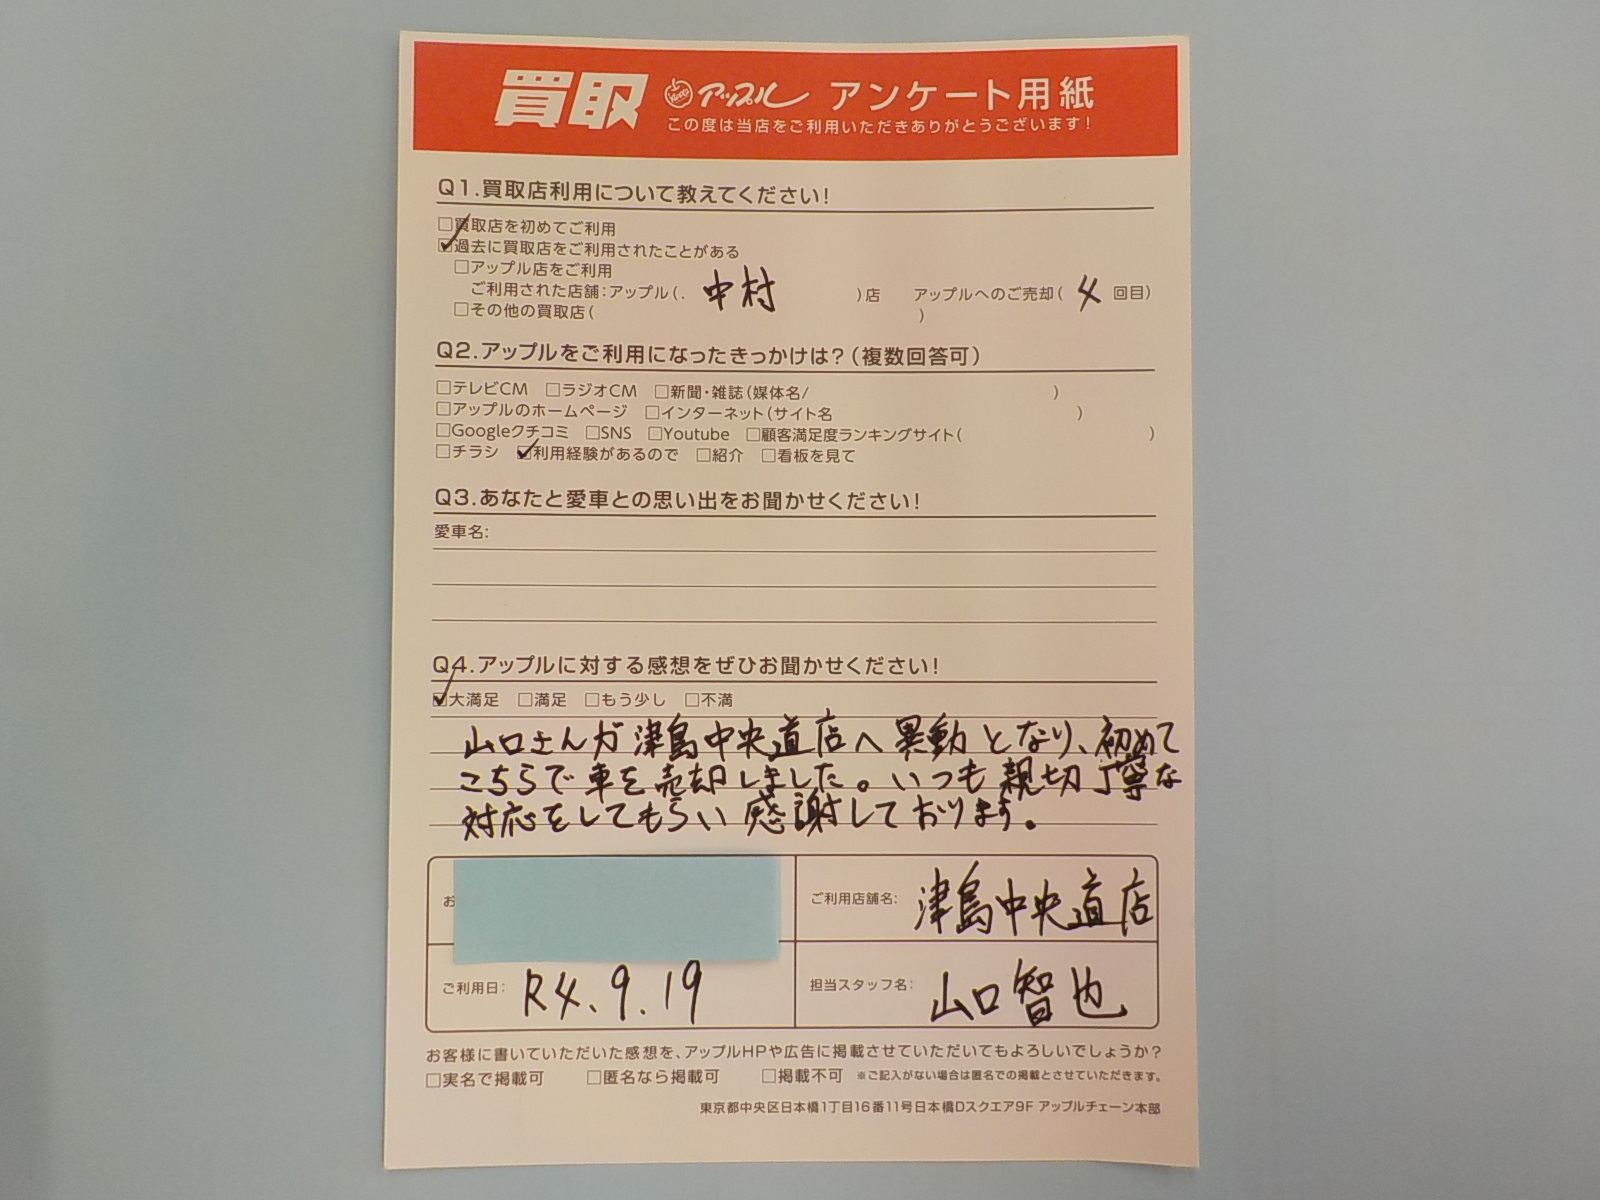 買取 アップル アンケート用紙
この度は当店をご利用いただきありがとうございます!
Q1.買取店利用について教えてください!
□買取店を初めてご利用
☑過去に買取店をご利用されたことがある
□アップル店をご利用
ご利用された店舗:アップル(. 中村 )店 アップルへのご売却( 4 回目)
□その他の買取店( )
Q2.アップルをご利用になったきっかけは?(複数回答可)
□テレビCM □ラジオCM □新聞・雑誌(媒体名/ )
□アップルのホームページ □インターネット(サイト名 )
□Googleクチコミ □SNS □Youtube □顧客満足度ランキングサイト( )
□チラシ ☑利用経験があるので □紹介 □看板を見て
Q3.あなたと愛車との思い出をお聞かせください!
愛車名:
Q4.アップルに対する感想をぜひお聞かせください!
☑大満足 □満足 □もう少し □不満
山口さんが津島中央道店へ異動となり、初めて
こちらで車を売却しました。いつも親切丁寧な
対応をしてもらい感謝しております。
お
ご利用店舗名: 津島中央道店
ご利用日: R4.9.19
担当スタッフ名: 山口智也
お客様に書いていただいた感想を、アップルHPや広告に掲載させていただいてもよろしいでしょうか?
□実名で掲載可 □匿名なら掲載可 □掲載不可 ※ご記入がない場合は匿名での掲載とさせていただきます。
東京都中央区日本橋1丁目16番11号日本橋Dスクエア9F アップルチェーン本部